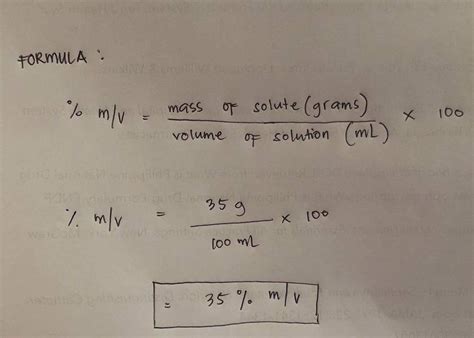 FORMULA :
% m/v = mass of solute (grams) / volume of solution (mL) × 100
% m/v = 35 g / 100 mL × 100
= 35 % m/v